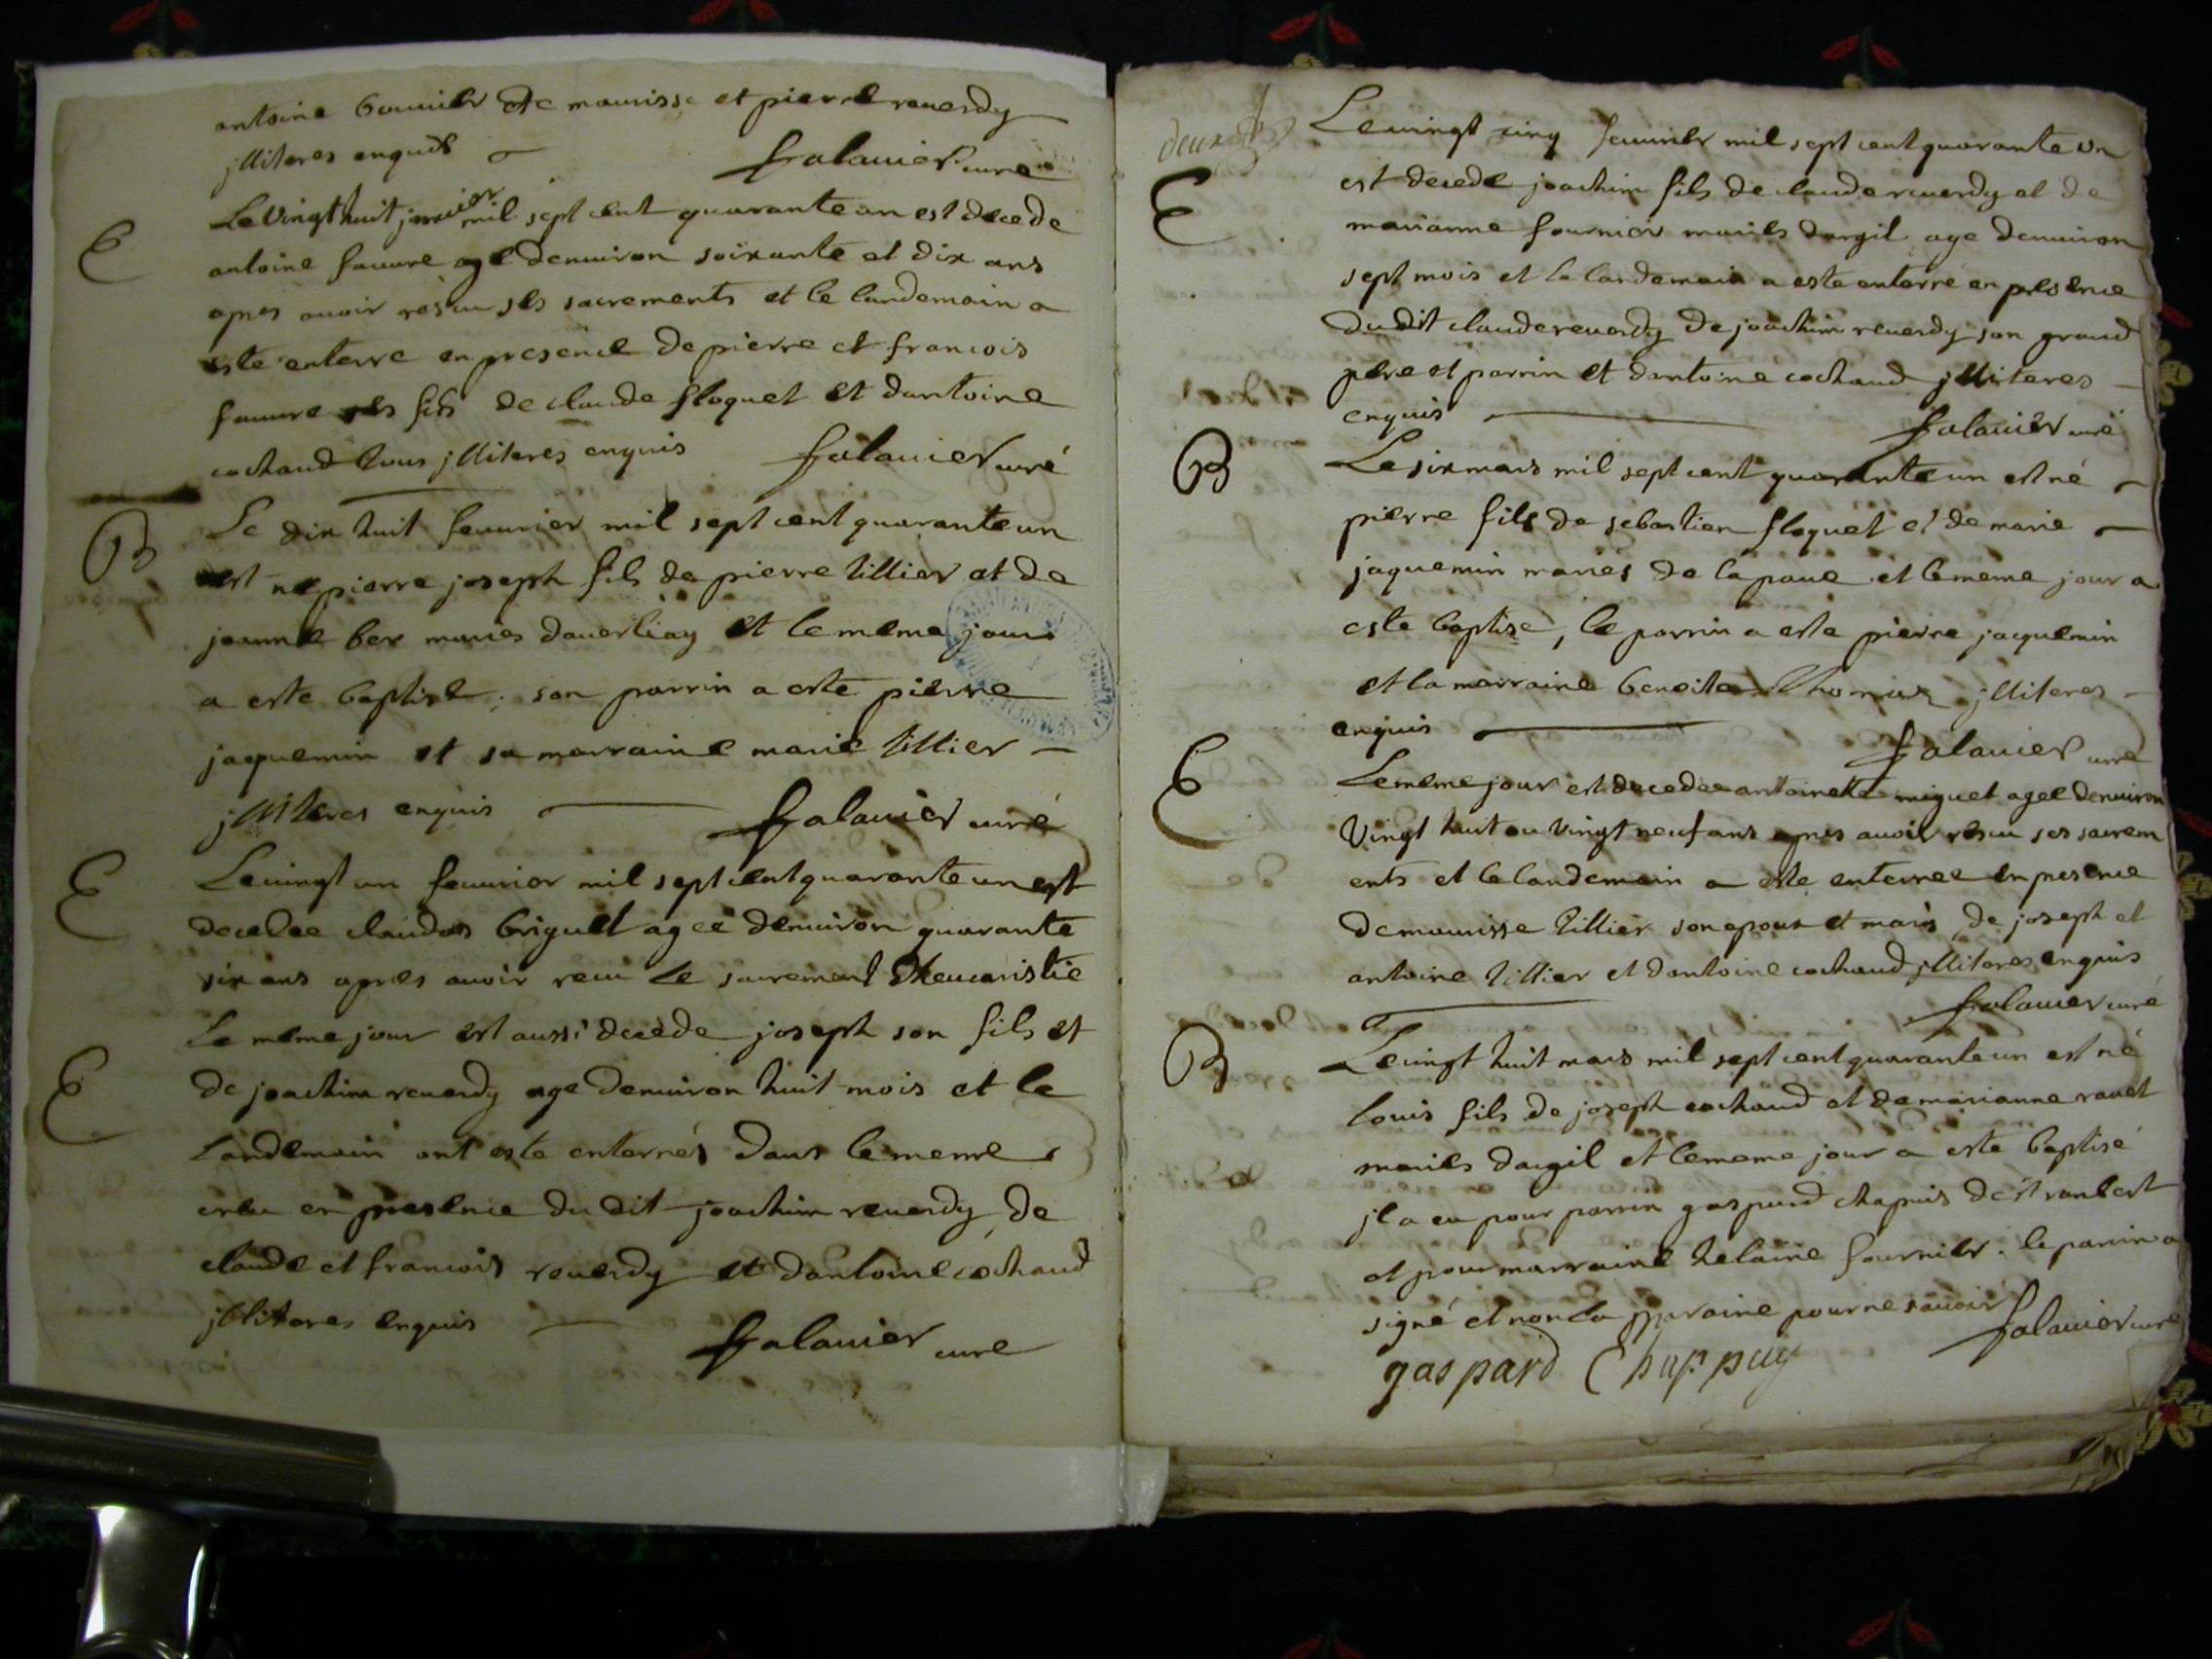 antoine bouuier de maurisse et pierre reuerdy
jlliteres enquis
falauier curé
E
Le vingt huit januier mil sept cent quarante un est decede
antoine fauure age denuiron soixante et dix ans
apres auoir resçu ses sacrements et le landemain a
este enterre en presence de pierre et francois
fauure ses fils de claude floquet et dantoine
cochaud tous jlliteres enquis falauier curé
B
Le dix huit feuurier mil sept cent quarante un
est ne pierre joseph fils de pierre tillier et de
jeanne ber mariés dauerliay et le meme jour
a este baptise. son parrin a este pierre
jaquemin et sa marraine marie tillier
jlliteres enquis falauier curé
E
Le vingt un feuurier mil sept cent quarante un est
decedee claudas briguet agée denuiron quarante
six ans apres auoir recu le sacrement dheucaristie
E
Le meme jour est aussi decede joseph son fils et
de joachim reuerdy age denuiron huit mois et le
Landemain ont este enterrés dans le meme
creu en presence du dit joachim reuerdy, de
claude et francois reuerdy et dantoine cochaud
jlliteres enquis falauier curé
deux
E
Le uingt cinq feuurier mil sept cent quarante un
est decede joachim fils de claude reuerdy et de
marianne fournier mariés dargil age denuiron
sept mois et le landemain a este enterré en presence
du dit claude reuerdy de joachim reuerdy son grand
pere et parrin et dantoine cochaud jlliteres
enquis falauier curé
B
Le six mars mil sept cent quarante un est né
pierre fils de sebastien floquet et de marie
jaquemin mariés de la paue et le meme jour a
este baptisé, le parrin a este pierre jaquemin
et la marraine benoite thomas jlliteres
enquis falauier curé
E
Le meme jour est decedee antoinette miguet agee denuiron
Vingt huit ou vingt neuf ans apres auoir resçu ses sacrem
ents et le landemain a este enterree en presence
de maurisse tillier son epoux et maris, de joseph et
antoine tillier et dantoine cochaud jlliteres enquis
falauier curé
B
Le uingt huit mars mil sept cent quarante un est né
louis fils de joseph cochaud et de marianne rauet
mariés dargil et le meme jour a este baptisé
jl a eu pour parrin gaspard chapuis de st rambert
et pour marraine helaine fournier. le parrin a
signé et non la maraine pour ne sauoir
falauier curé
gaspard Chappuy